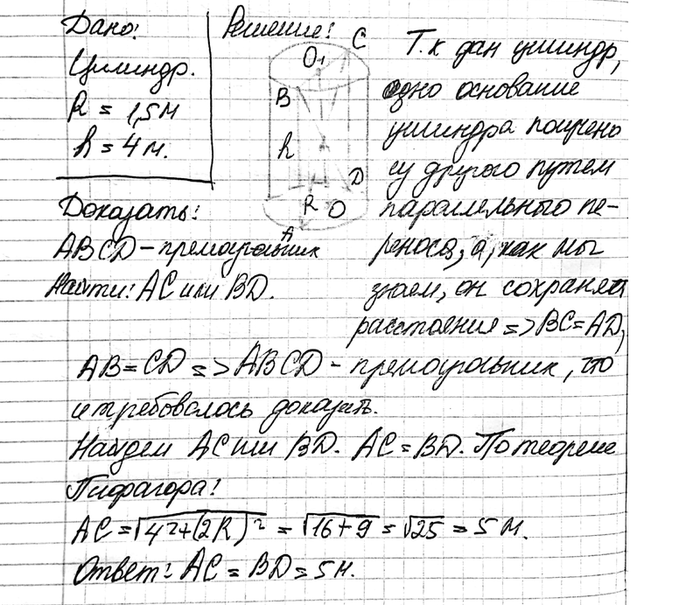 Дано:
Цилиндр.
R = 1,5 м
h = 4 м.
Доказать:
ABCD – прямоугольник
Найти: AC или BD.
Решение:
O₁ C
B
h
D
R O
A
Т.к дан цилиндр,
одно основание
цилиндра получено
из другого путем
параллельного пе-
реноса, а, как мы
знаем, он сохраняет
расстояния => BC = AD,
AB = CD => ABCD – прямоугольник, что
и требовалось доказать.
Найдем AC или BD. AC = BD. По теореме
Пифагора:
AC = √4²+(2R)² = √16+9 = √25 = 5 м.
Ответ: AC = BD = 5м.